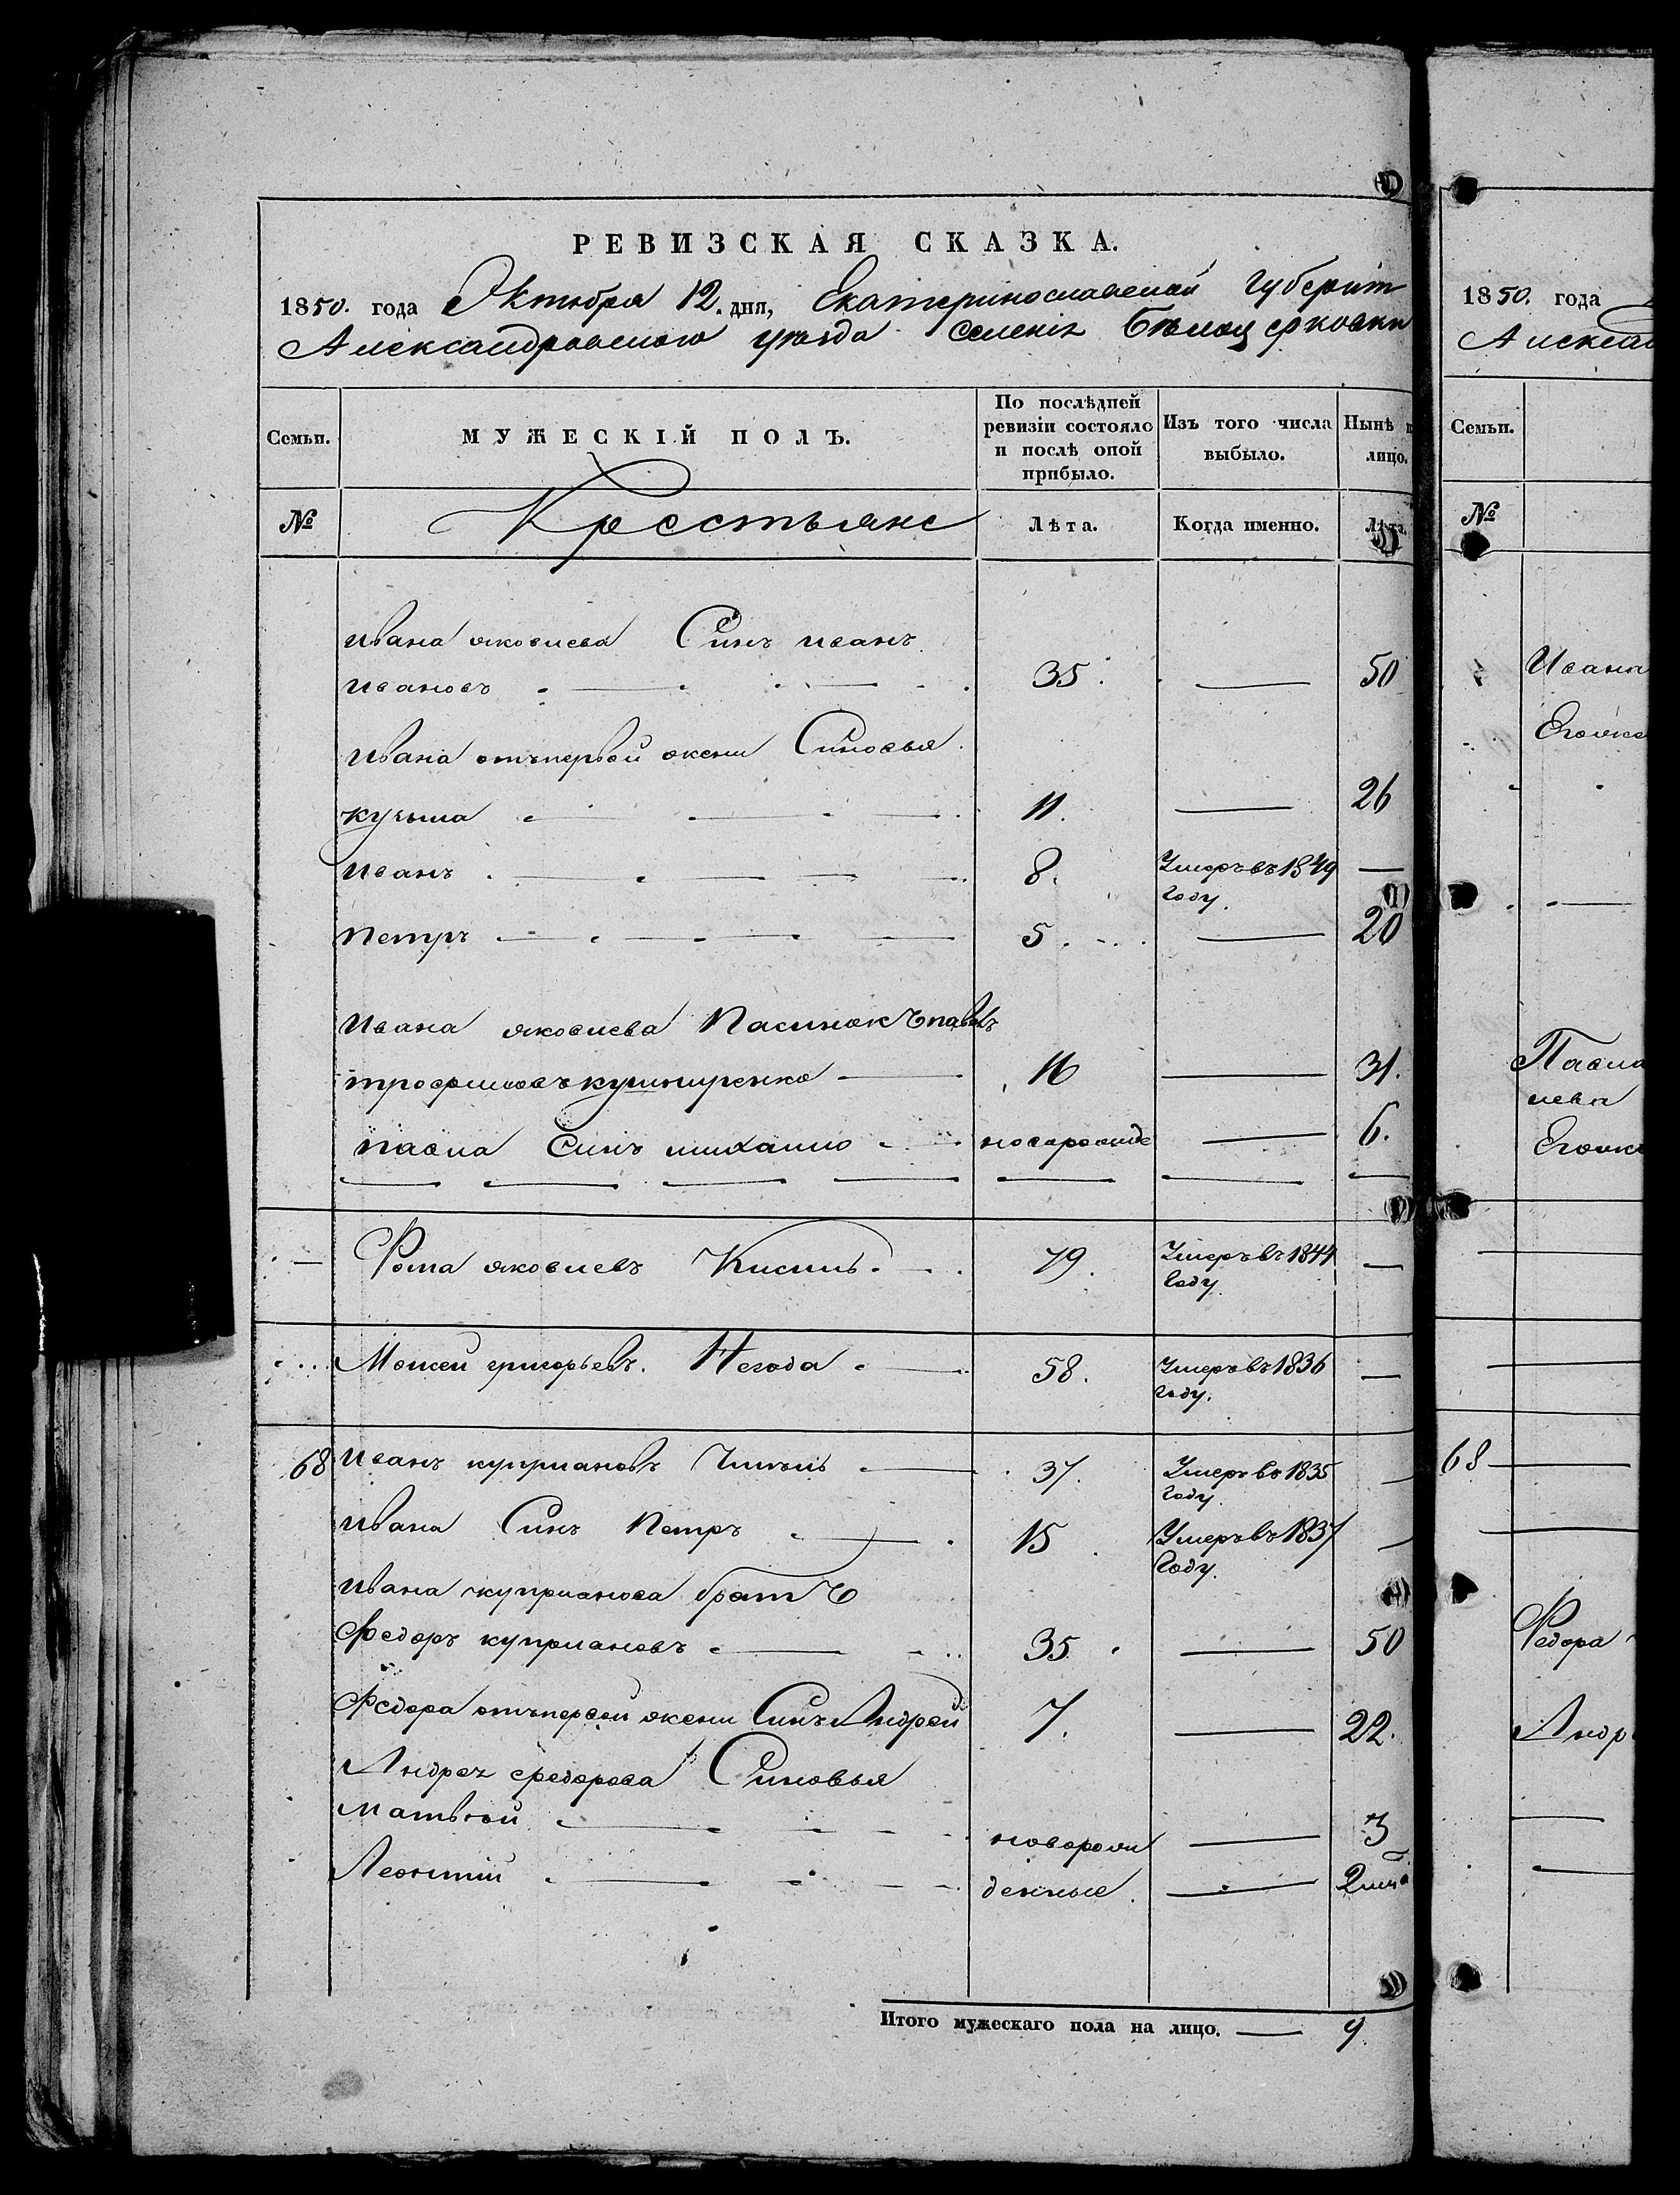 РЕВИЗСКАЯ СКАЗКА.
1850. года Октября 12. дня, Екатеринославской Губерніи
Александровского уѣзда селенія Бѣлоцерковки
Семьи. МУЖЕСКІЙ ПОЛЪ. По послѣдней ревизіи состояло и послѣ оной прибыло. Изъ того числа выбыло. Нынѣ лицо.
№ Крестьяне Лѣта. Когда именно. Лѣта.
Ивана яковлева Синъ иванъ
ивановъ 35. 50
Ивана отъпервой жени Синовья
кузьма 11. 26
иванъ 8. Умеръ въ 1849 году.
петръ 5. 20
ивана яковлева Пасинокъ павелъ
трофимовъ кушниренко 16 31.
павла Синъ михаило новорожде 6.
Фома яковлевъ Кисиль 79. Умеръ въ 1844 Году.
Моисей григорьевъ. Негода 58. Умеръ въ 1836 году.
68 Иванъ куприановъ 37. Умеръ въ 1835 году.
ивана Синъ Петръ 15 Умеръ въ 1837 Году.
ивана куприанова братъ
Федоръ куприановъ 35 50
Федора отъпервой жени Синъ Андрей 7. 22.
Андрея федорова Синовья
матвѣй новорож 3
Леонтій денные. 2
Итого мужескаго пола на лицо. 9
1850. года
Александ
Семьи.
№
Ивана
Егоже
Павла
лева
Егоже
68
Федора
Андре